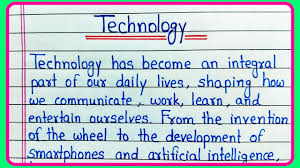 Technology
Technology has become an integral
part of our daily lives, shaping how
we communicate, work, learn, and
entertain ourselves. From the invention
of the wheel to the development of
smartphones and artificial intelligence,